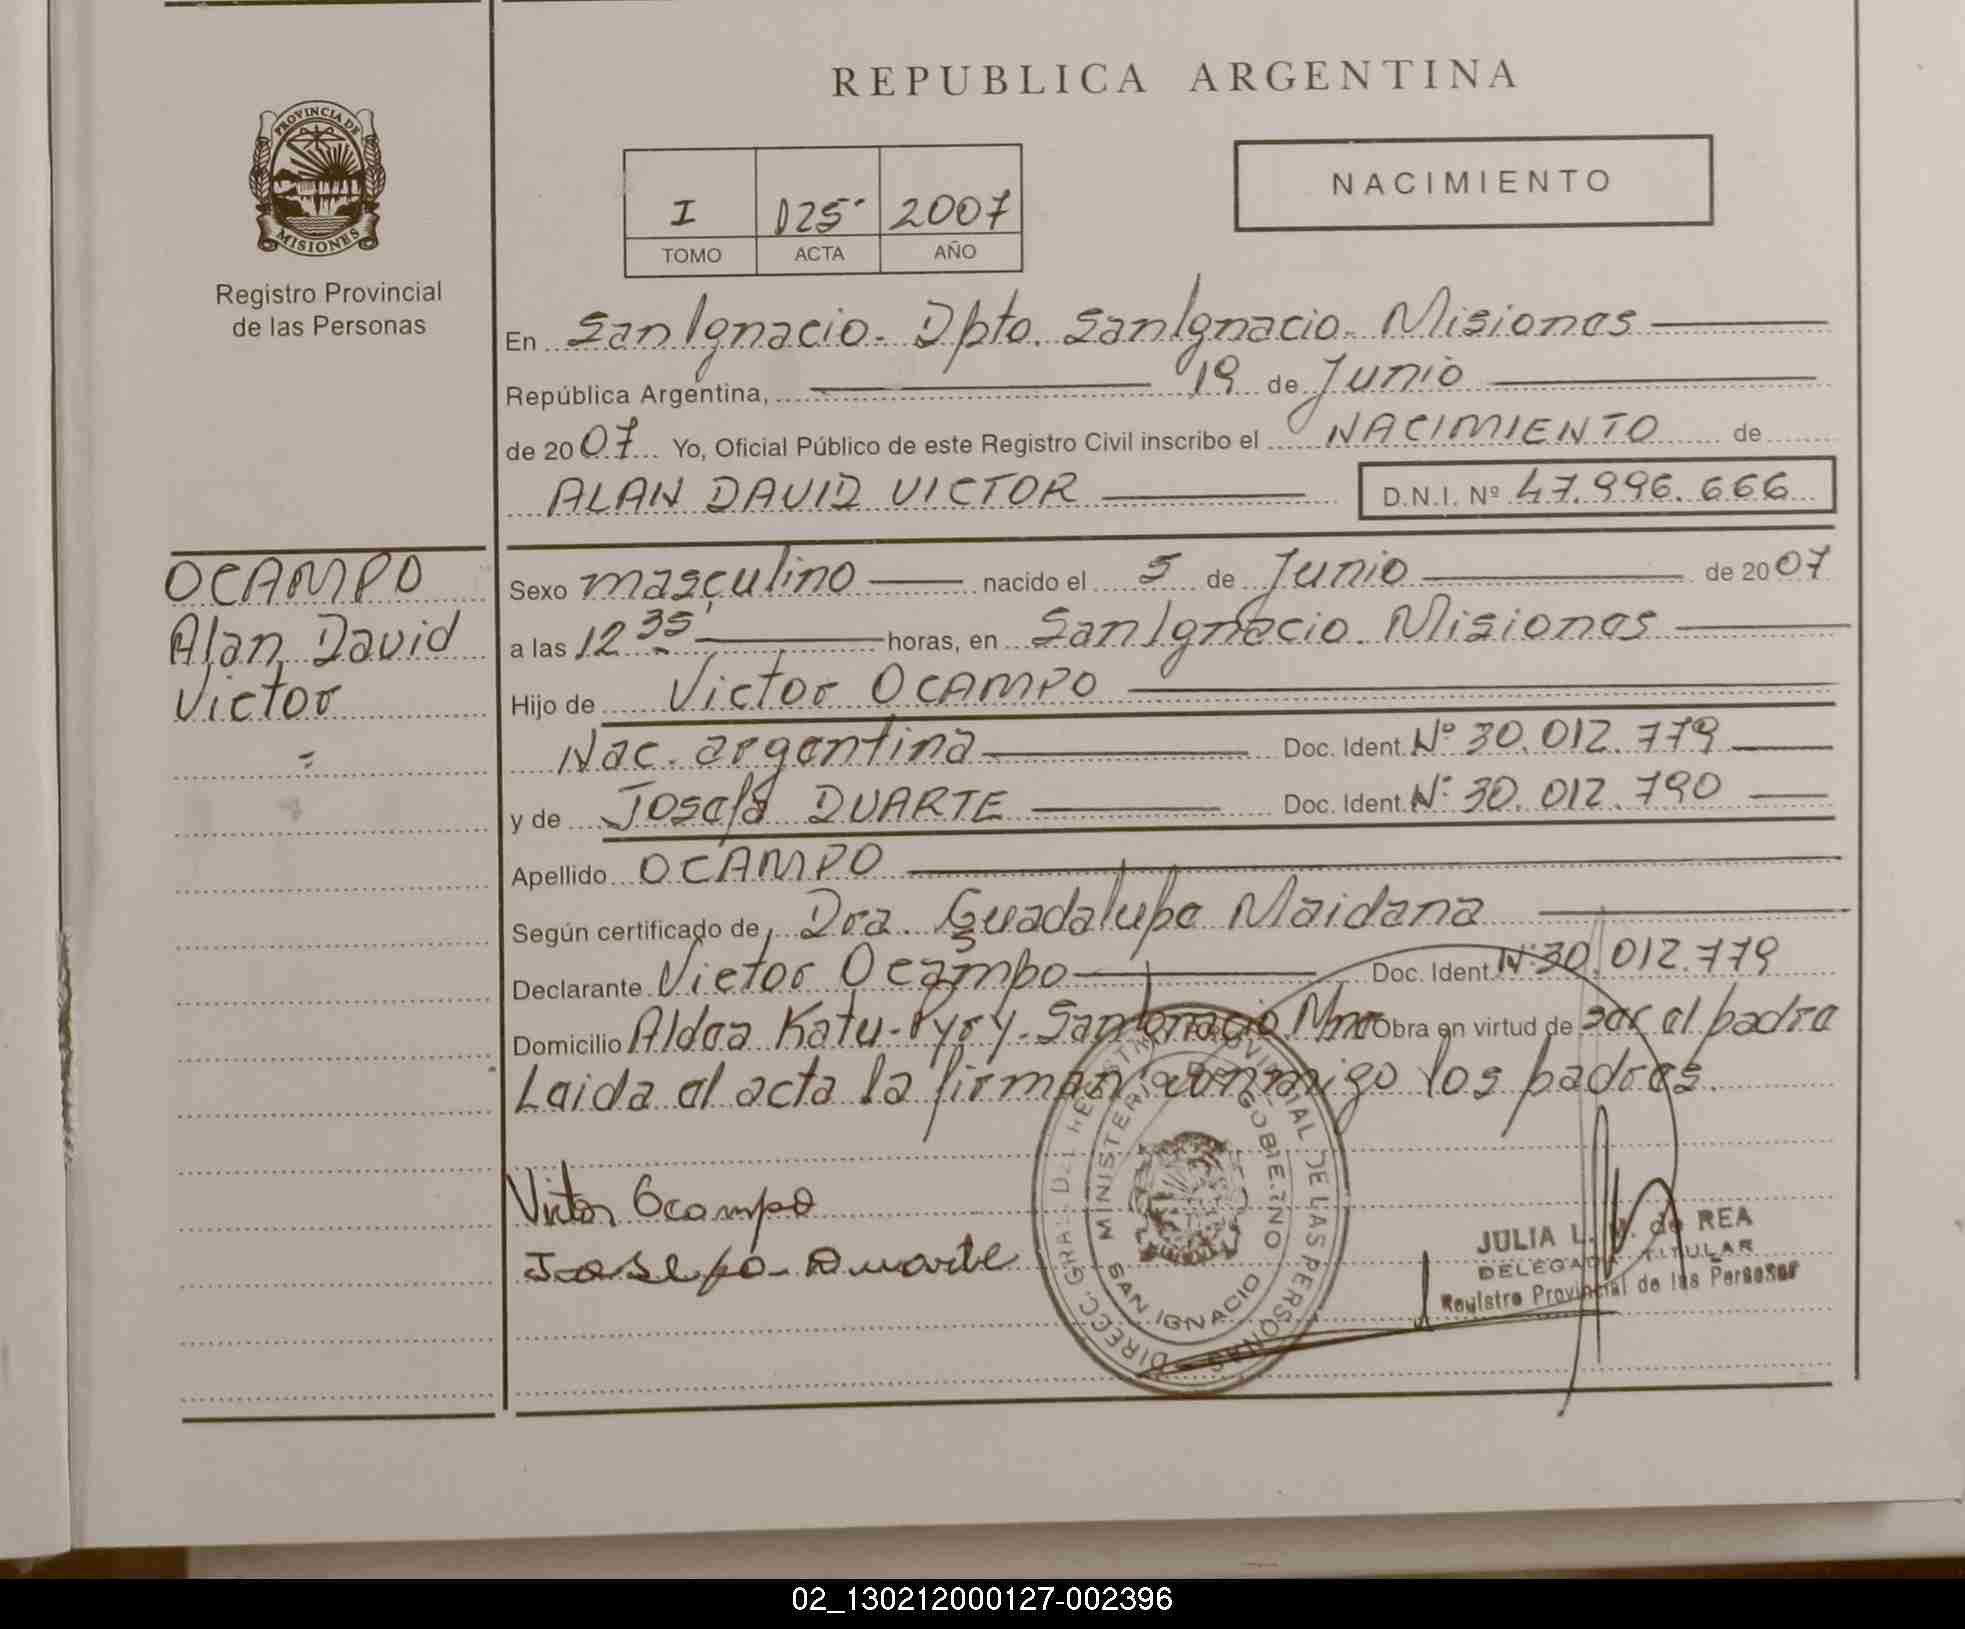 REPUBLICA ARGENTINA
PROVINCIA DE
MISIONES
Registro Provincial
de las Personas
NACIMIENTO
I 125 2007
TOMO ACTA AÑO
En San Ignacio - Dpto. San Ignacio - Misiones
República Argentina, 19 de Junio
de 2007 Yo, Oficial Público de este Registro Civil inscribo el NACIMIENTO de
ALAN DAVID VICTOR D.N.I. Nº 47.996.666
OCAMPO
Alan David
Victor
Sexo masculino nacido el 5 de Junio de 2007
a las 12 35' horas, en San Ignacio. Misiones
Hijo de Victor OCAMPO
Nac. argentina Doc. Ident. Nº 30.012.779
y de Josefa DUARTE Doc. Ident. Nº 30.012.790
Apellido OCAMPO
Según certificado de Dra. Guadalupe Maidana
Declarante Victor Ocampo Doc. Ident. Nº 30.012.779
Domicilio Aldea Katu-Pyry - San Ignacio Mnes Obra en virtud de ser el padre
Leida el acta la firman conmigo los padres.
Victor Ocampo
Josefa Duarte
DIRECC. GRAL. DEL REGISTRO PROVINCIAL DE LAS PERSONAS
MINISTERIO DE GOBIERNO
SAN IGNACIO
JULIA L. de REA
DELEGADA TITULAR
Registro Provincial de las Personas
02_130212000127-002396